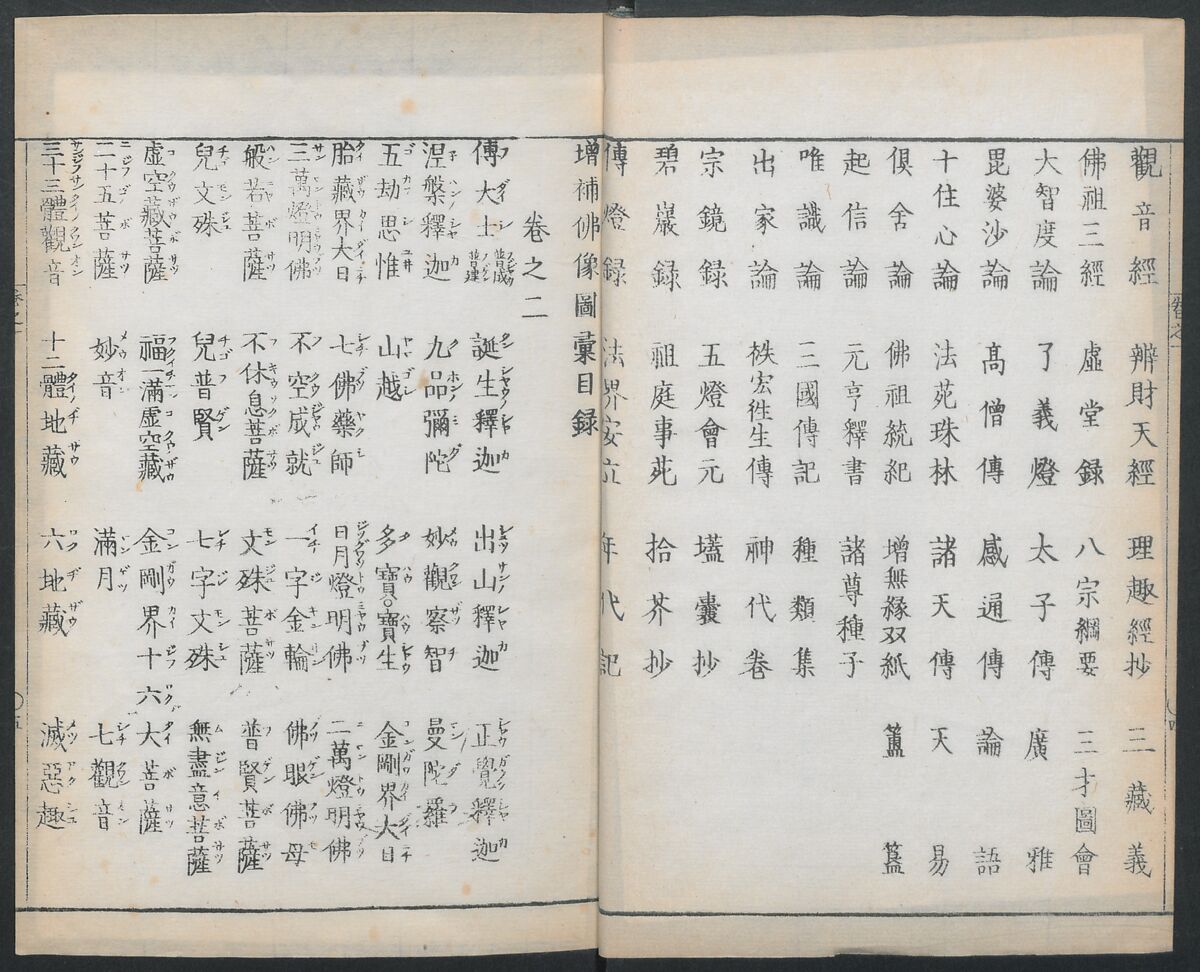 觀音經　辨財天經　理趣經抄　三藏義
佛祖三經　虛堂録　八宗綱要　三才圖會
大智度論　了義燈　太子傳　廣雅
毘婆沙論　髙僧傳　感通傳　論語
十住心論　法苑珠林　諸天傳　天易
俱舍論　佛祖統紀　增無縁双紙　簠簋
起信論　元亨釋書　諸尊種子
唯識論　三國傳記　種類集
出家論　袾宏徃生傳　神代卷
宗鏡録　五燈會元　壒囊抄
碧巖録　祖庭事苑　拾芥抄
傳燈録　法界安立　年代記
增補佛像圖彙目録
卷之二
傅大士　普成　普建　誕生釋迦　出山釋迦　正覺釋迦
涅槃釋迦　九品彌陀　妙觀察智　曼陀羅
五劫思惟　山越　多寶○寶生　金剛界大日
胎藏界大日　七佛藥師　日月燈明佛　二萬燈明佛
三萬燈明佛　不空成就　一字金輪　佛眼佛母
般若菩薩　不休息菩薩　文殊菩薩　普賢菩薩
兒文殊　兒普賢　七字文殊　無盡意菩薩
虛空藏菩薩　福一滿虛空藏　金剛界十六大菩薩
二十五菩薩　妙音　滿月　七觀音
三十三體觀音　十二體地藏　六地藏　滅惡趣